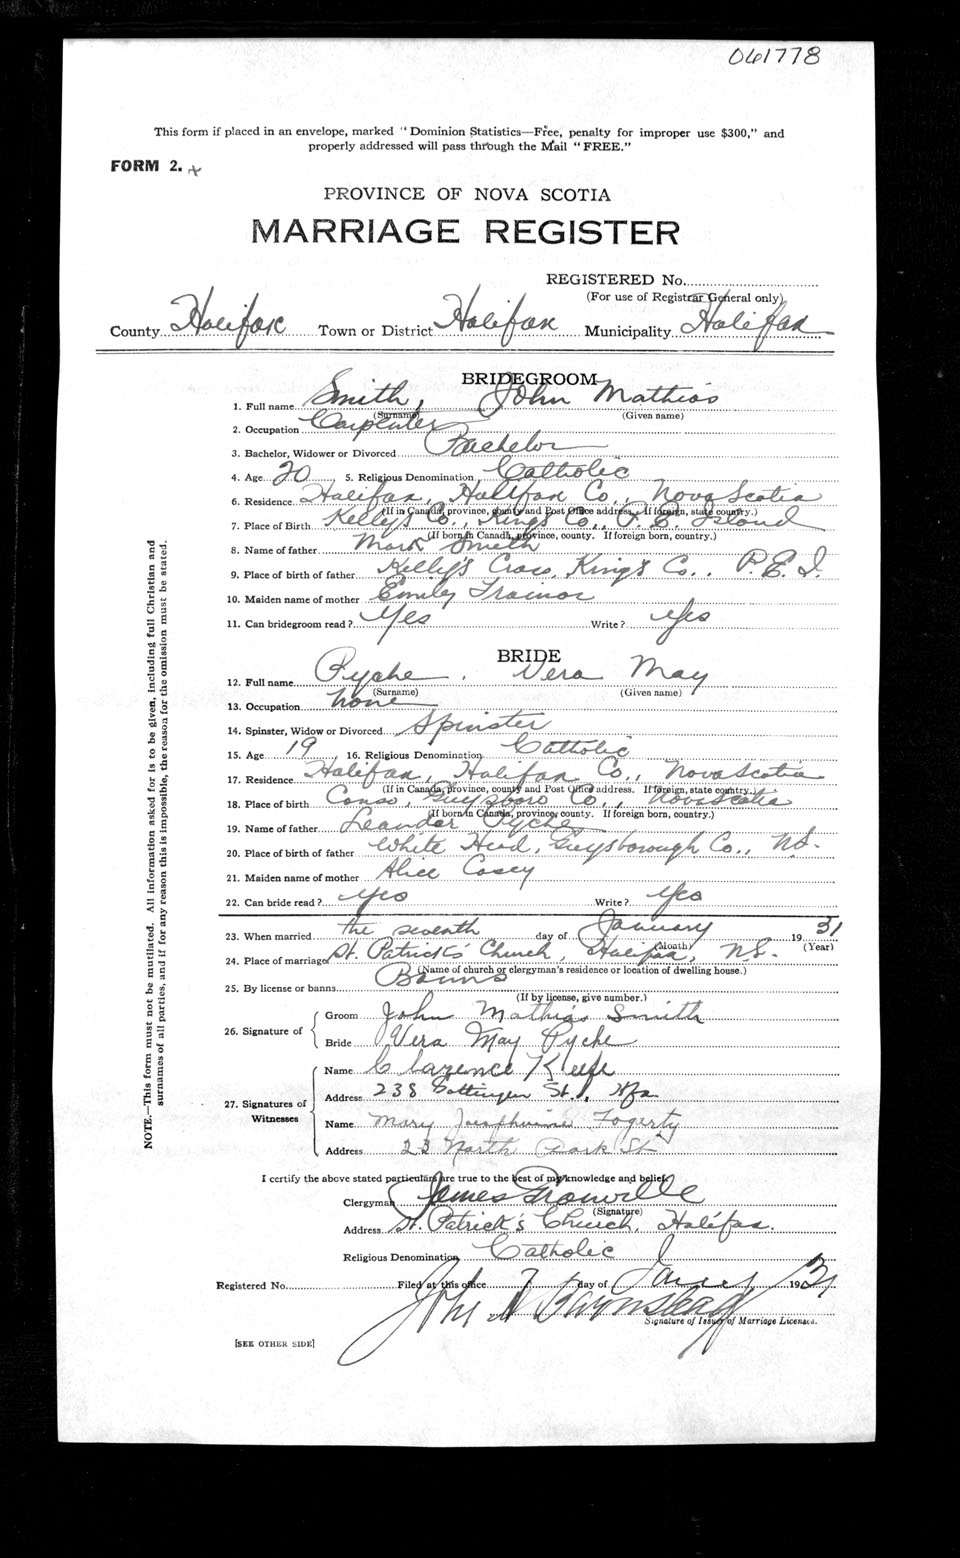 061778
This form if placed in an envelope, marked "Dominion Statistics—Free, penalty for improper use $300," and
properly addressed will pass through the Mail "FREE."
FORM 2.
PROVINCE OF NOVA SCOTIA
MARRIAGE REGISTER
REGISTERED No.
(For use of Registrar General only)
County Halifax Town or District Halifax Municipality Halifax
BRIDEGROOM
1. Full name Smith, John Mathias
(Surname) (Given name)
2. Occupation Carpenter
3. Bachelor, Widower or Divorced Bachelor
4. Age 20 5. Religious Denomination Catholic
6. Residence Halifax, Halifax Co., Nova Scotia
(If in Canada, province, county and Post Office address. If foreign, state country.)
7. Place of Birth Kelly's Co., King's Co., P. E. Island
(If born in Canada, province, county. If foreign born, country.)
8. Name of father Mark Smith
9. Place of birth of father Kelly's Cross, King's Co., P.E.I.
10. Maiden name of mother Emily Trainor
11. Can bridegroom read? Yes Write? Yes
BRIDE
12. Full name Pyche, Vera May
(Surname) (Given name)
13. Occupation none
14. Spinster, Widow or Divorced Spinster
15. Age 19 16. Religious Denomination Catholic
17. Residence Halifax, Halifax Co., Nova Scotia
(If in Canada, province, county and Post Office address. If foreign, state country.)
18. Place of birth Canso, Guysboro Co., Nova Scotia
(If born in Canada, province, county. If foreign born, country.)
19. Name of father Leander Pyche
20. Place of birth of father White Head, Guysborough Co., N.S.
21. Maiden name of mother Alice Casey
22. Can bride read? Yes Write? Yes
23. When married the seventh day of January 1931
(Month) (Year)
24. Place of marriage St. Patrick's Church, Halifax, N.S.
(Name of church or clergyman's residence or location of dwelling house.)
25. By license or banns Banns
(If by license, give number.)
26. Signature of Groom John Mathias Smith
Bride Vera May Pyche
27. Signatures of Witnesses Name Clarence Keefe
Address 238 Gottingen St., Hfx.
Name Mary Josephine Fogerty
Address 23 North Park St
I certify the above stated particulars are true to the best of my knowledge and belief.
Clergyman James Granville
(Signature)
Address St. Patrick's Church, Halifax.
Religious Denomination Catholic
Registered No. Filed at this office 7 day of Jany 1931
John A Barnstead
Signature of Issuer of Marriage Licenses.
[SEE OTHER SIDE]
NOTE.—This form must not be mutilated. All information asked for is to be given, including full Christian and
surnames of all parties, and if for any reason this is impossible, the reason for the omission must be stated.